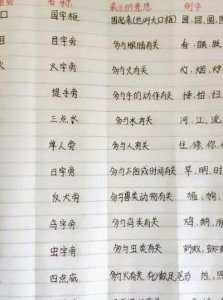 名称 表示的意思 例字
口 国字框 围起来(四周大口框) 园、回、国、
目字旁 多与眼睛有关 看、眼、
火字旁 多与火有关 灯、烟、炉
提手旁 多与手的动作有关 推、拍、扫
三点水 多与水有关 河、江、流
单人旁 多与人有关 住、你、
日字旁 多与太阳或时间有关 早、明、时
反犬旁 多与兽类动物有关 猫、狗、
鸟字旁 多与鸟类有关 鸡、鹅、
虫字旁 多与虫类有关 蚂蚁、
四点底 多与火有关 热、